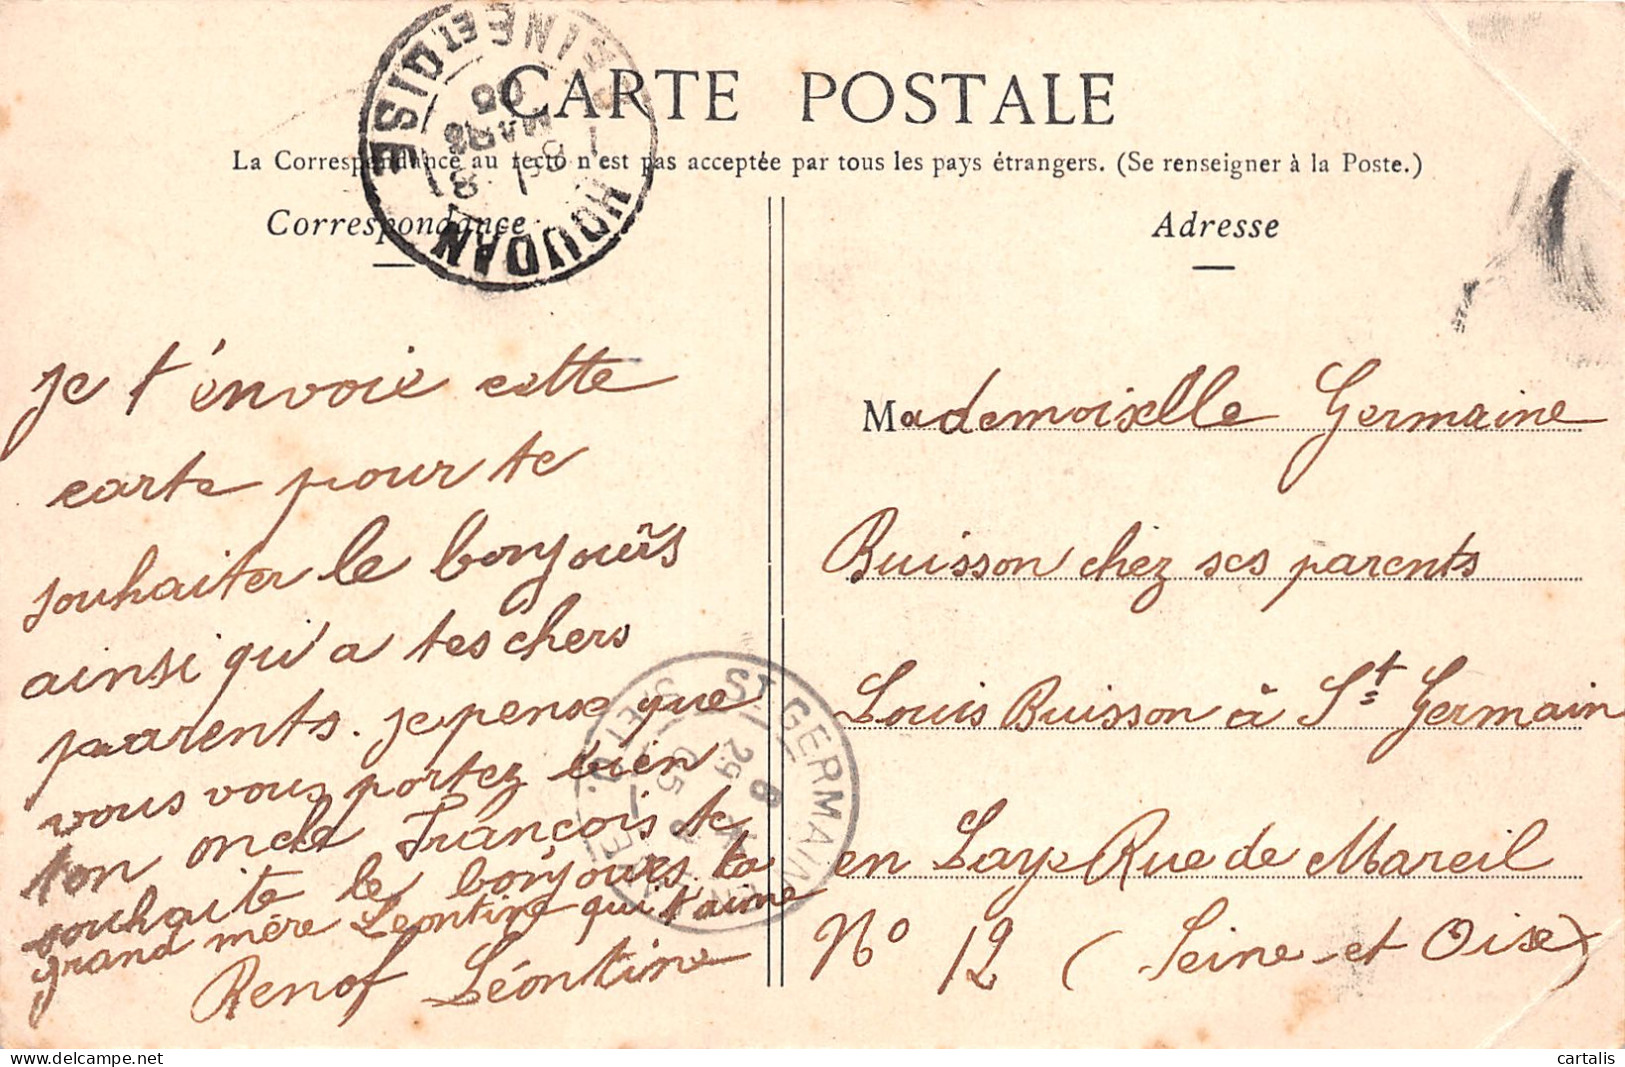 CARTE POSTALE
La Correspondance au recto n'est pas acceptée par tous les pays étrangers. (Se renseigner à la Poste.)
Correspondance
Adresse
HOUDAN
SEINE ET OISE
MARS
05
je t'envoie cette
carte pour te
souhaiter le bonjours
ainsi qu'a tes chers
parents. je pense que
vous vous portez bien
ton oncle François te
souhaite le bonjours ta
grand mère Léontine qui t'aime
Renof Léontine
ST GERMAIN
29
05
Mademoiselle Germaine
Buisson chez ses parents
Louis Buisson à St Germain
en Laye Rue de Mareil
No 12 (Seine et Oise)
cartalis
www.delcampe.net